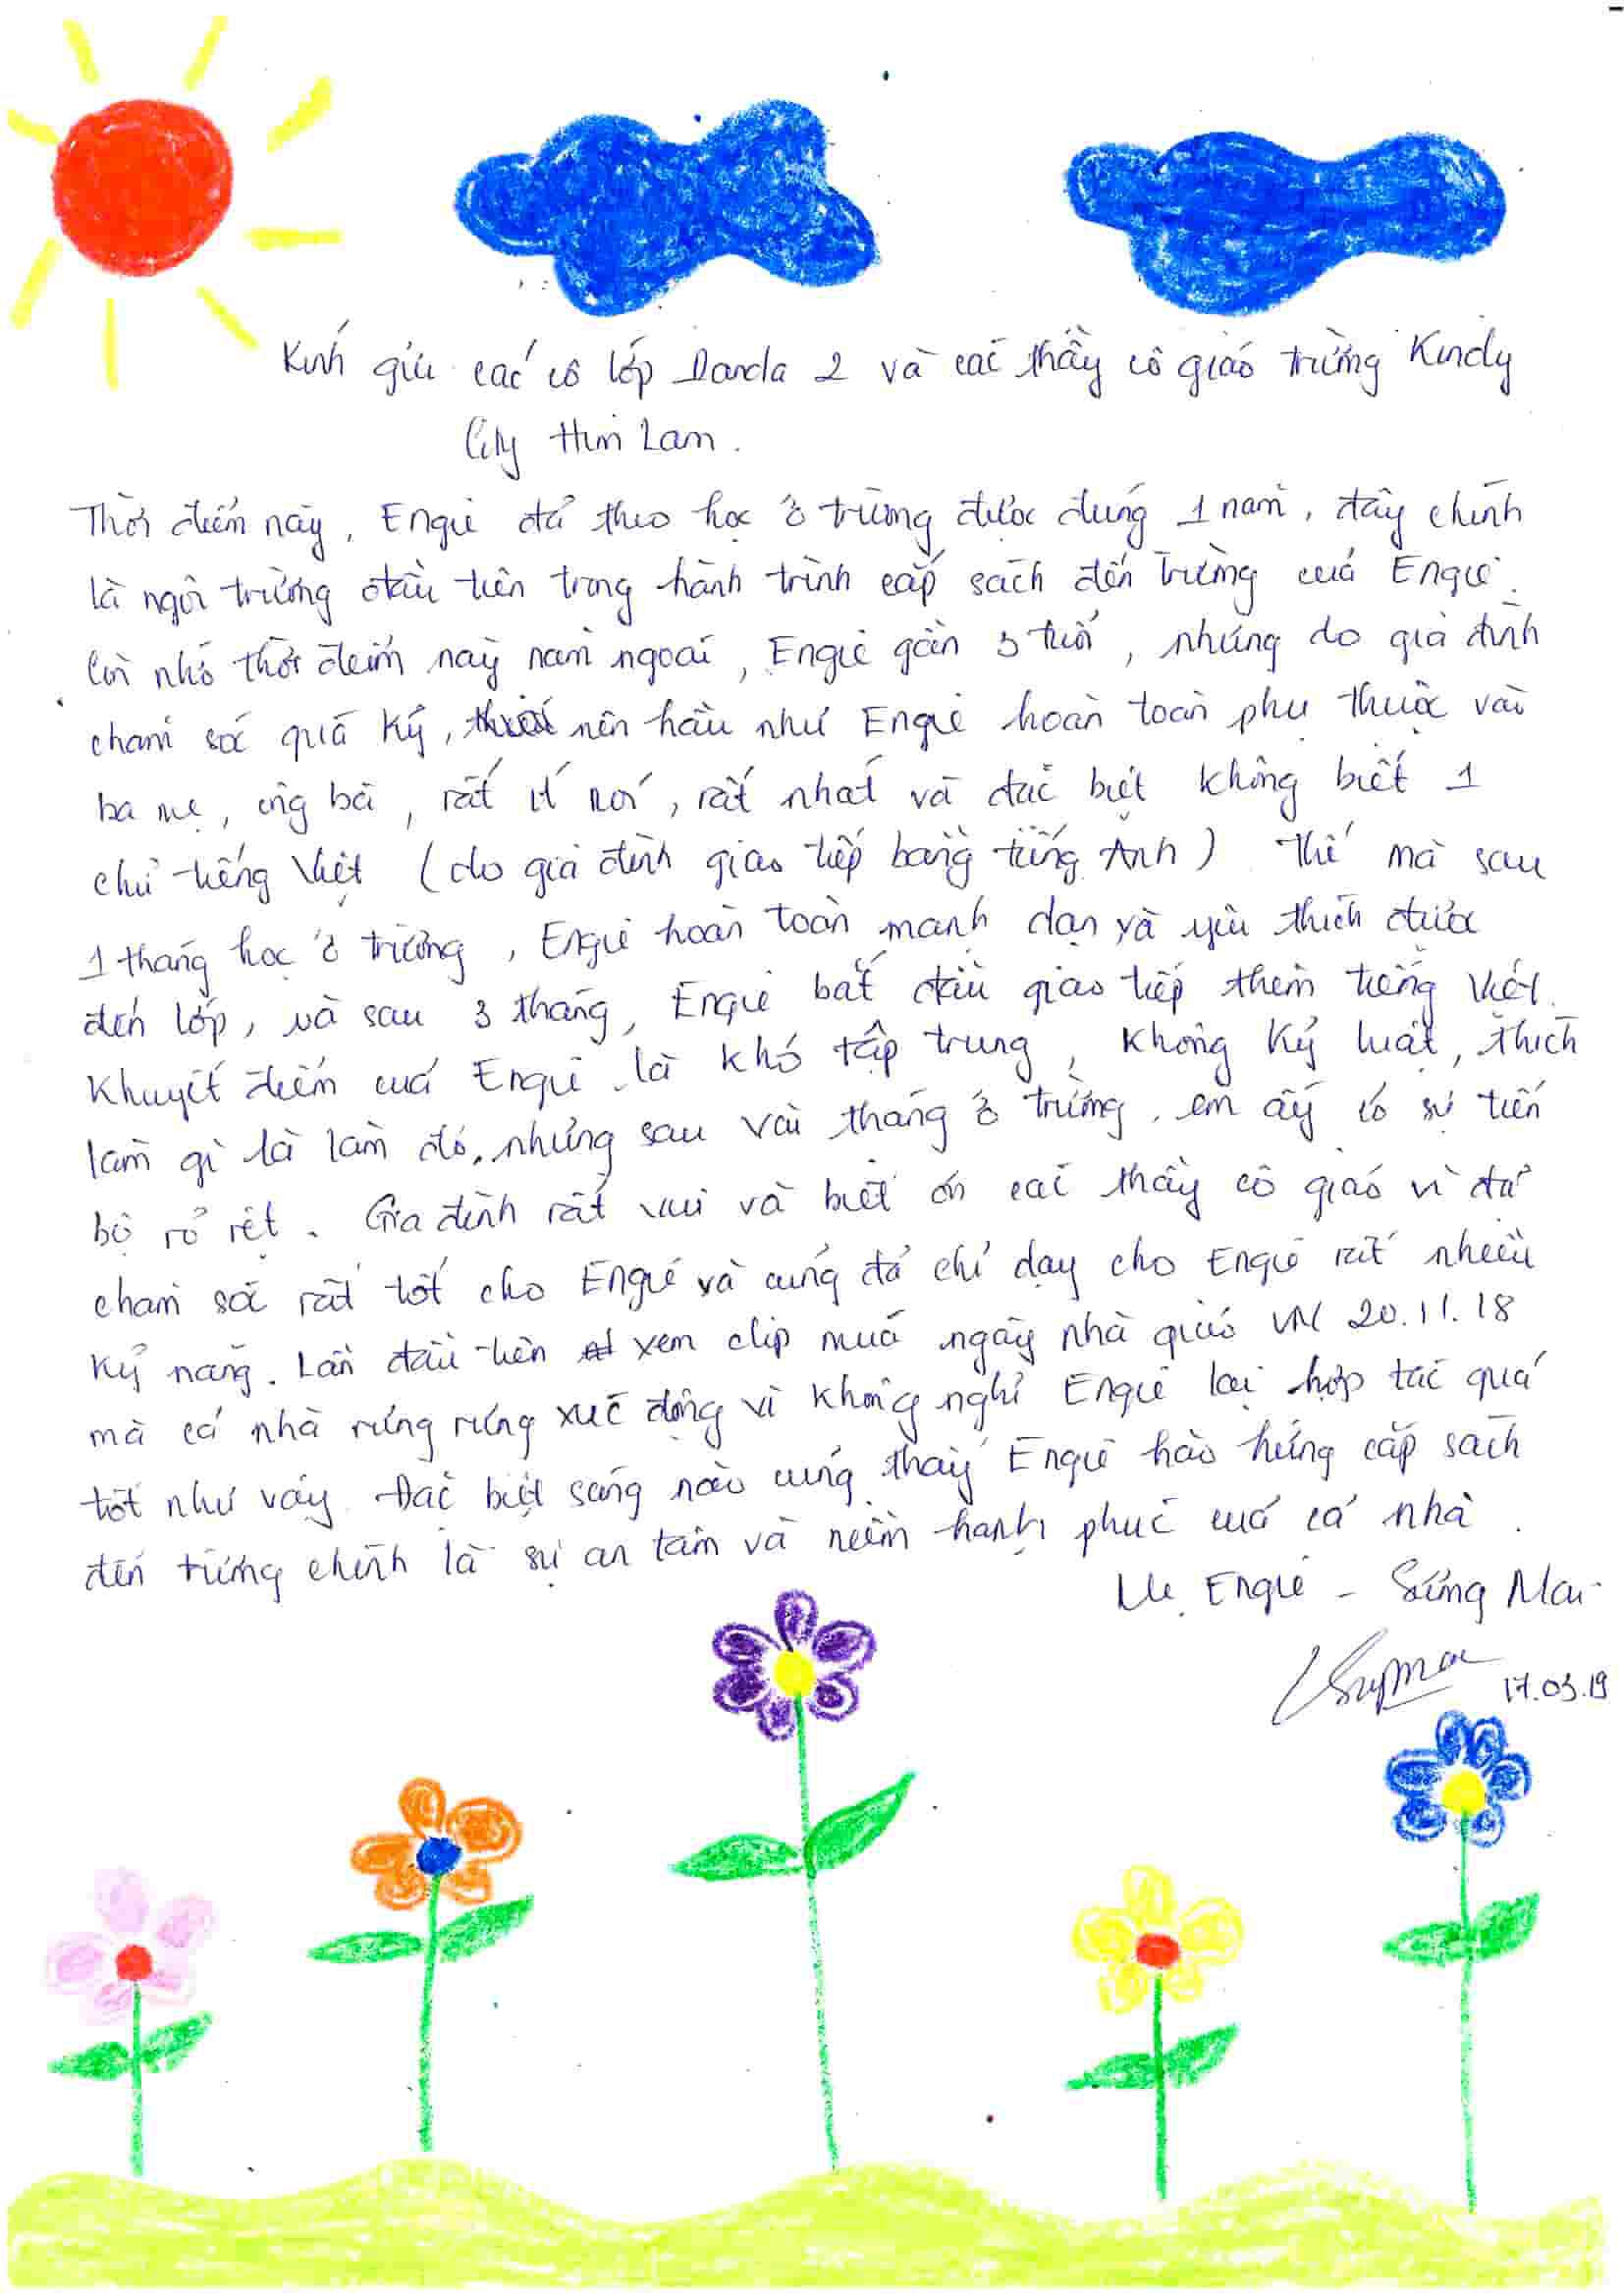 Kính gửi các cô lớp Panda 2 và các thầy cô giáo trường Kindy
City Him Lam.
Thời điểm này, Engie đã theo học ở trường được đúng 1 năm, đây chính
là ngôi trường đầu tiên trong hành trình cắp sách đến trường của Engie.
Còn nhớ thời điểm này năm ngoái, Engie gần 3 tuổi, nhưng do gia đình
chăm sóc quá kỹ, nên hầu như Engie hoàn toàn phụ thuộc vào
ba mẹ, ông bà, rất ít nói, rất nhát và đặc biệt không biết 1
chữ tiếng Việt (do gia đình giao tiếp bằng tiếng Anh). Thế mà sau
1 tháng học ở trường, Engie hoàn toàn mạnh dạn và yêu thích được
đến lớp, và sau 3 tháng, Engie bắt đầu giao tiếp thêm tiếng Việt.
Khuyết điểm của Engie là khó tập trung, không kỷ luật, thích
làm gì là làm đó, nhưng sau vài tháng ở trường, em ấy có sự tiến
bộ rõ rệt. Gia đình rất vui và biết ơn các thầy cô giáo vì đã
chăm sóc rất tốt cho Engie và cũng đã chỉ dạy cho Engie rất nhiều
kỹ năng. Lần đầu tiên xem clip múa ngày nhà giáo VN 20.11.18
mà cả nhà rưng rưng xúc động vì không nghĩ Engie lại hợp tác quá
tốt như vậy. Đặc biệt sáng nào cũng thấy Engie hào hứng cắp sách
đến trường chính là sự an tâm và niềm hạnh phúc của cả nhà.
Mẹ Engie - Sương Mai
17.03.19